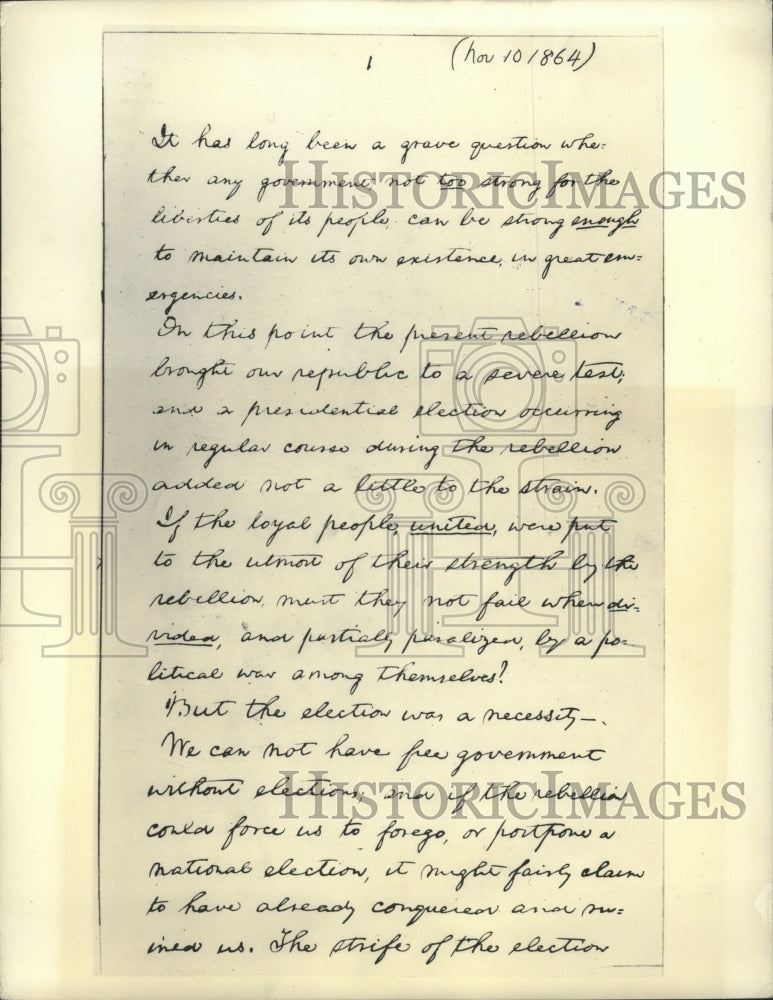 1
(Nov 10 1864)
It has long been a grave question whe=
ther any government, not too strong for the
liberties of its people, can be strong enough
to maintain its own existence, in great em=
ergencies.
On this point the present rebellion
brought our republic to a severe test;
and a presidential election occurring
in regular course during the rebellion
added not a little to the strain.
If the loyal people, united, were put
to the utmost of their strength by the
rebellion, must they not fail when di-
vided, and partially paralized, by a po-
litical war among themselves?
But the election was a necessity—.
We can not have free government
without elections; and if the rebellion
could force us to forego, or postpone a
national election, it might fairly claim
to have already conquered and ru=
ined us. The strife of the election
HISTORIC IMAGES
HISTORIC IMAGES